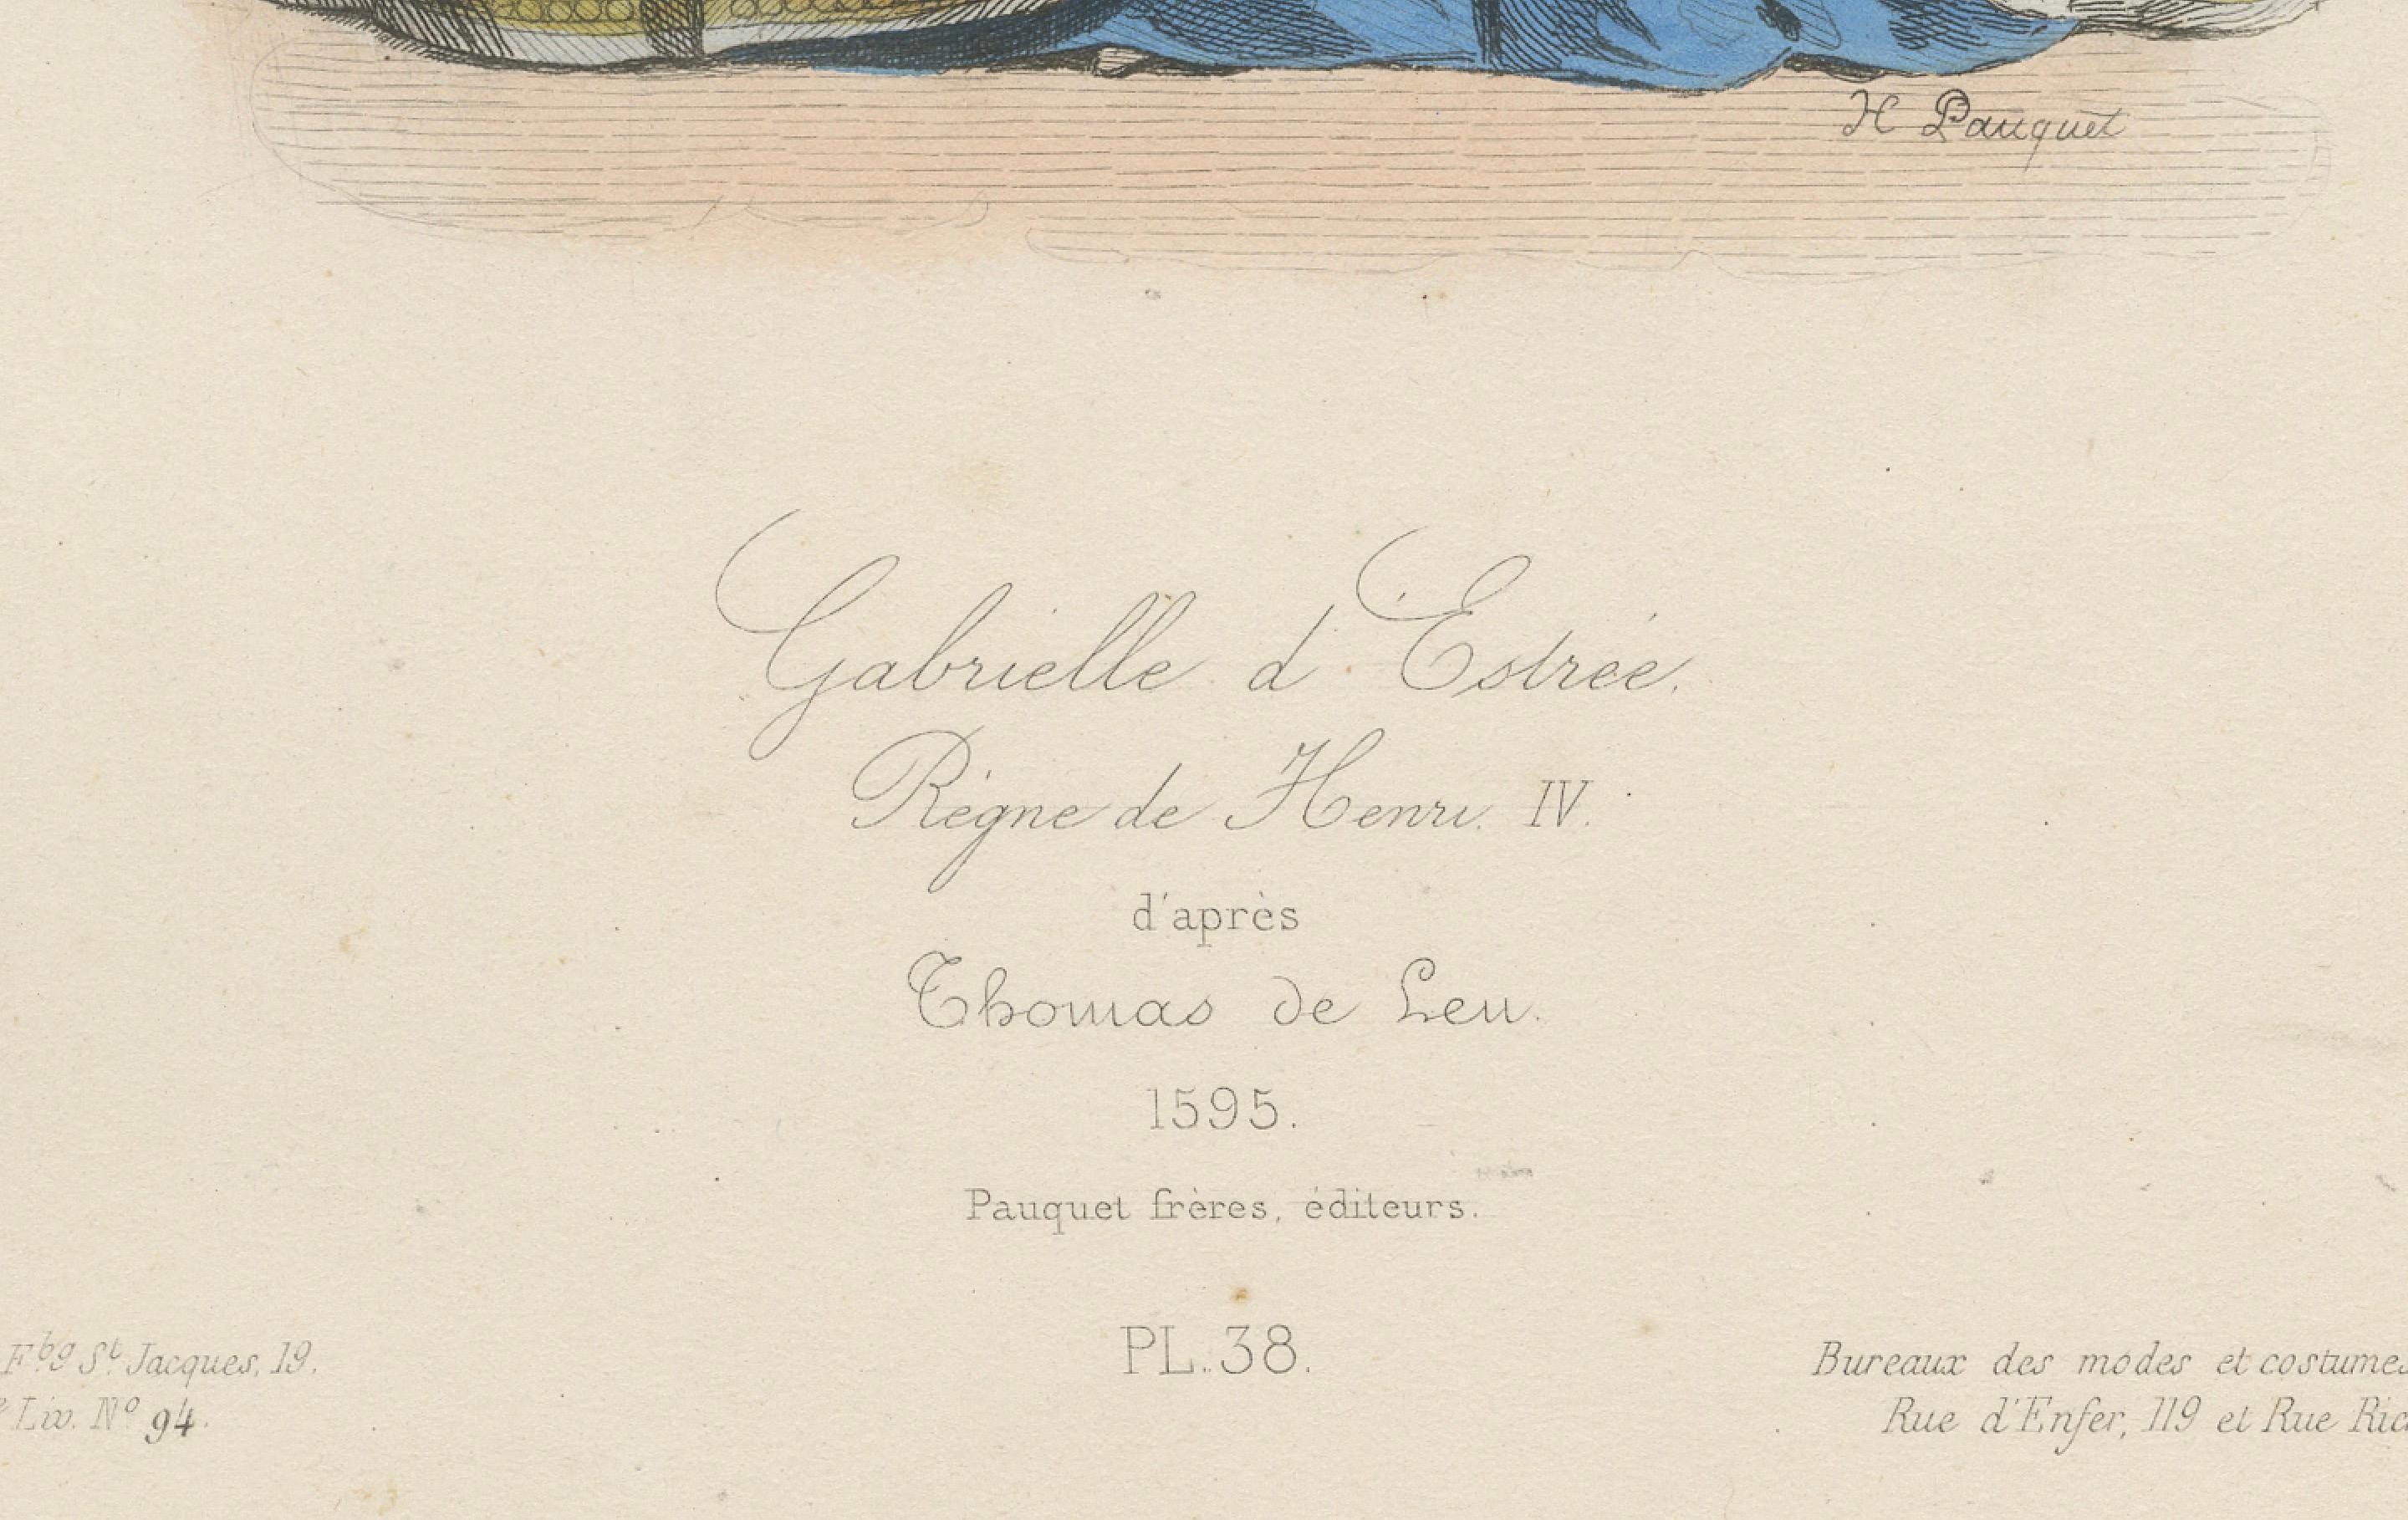 H Pauquet
Gabrielle d'Estrée.
Règne de Henri IV.
d'après
Thomas de Leu.
1595.
Pauquet frères, éditeurs.
PL. 38.
Fbg St Jacques, 19.
Liv. No 94.
Bureaux des modes et costumes
Rue d'Enfer, 119 et Rue Ric